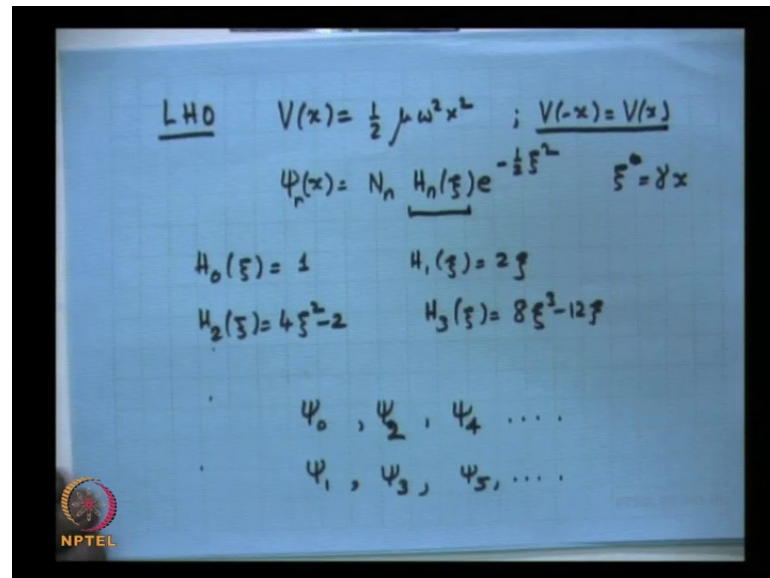 LHO V(x) = ½ μω²x² ; V(-x) = V(x)
Ψₙ(x) = Nₙ Hₙ(ξ) e^{-½ξ²} ξ = γx
H₀(ξ) = 1 H₁(ξ) = 2ξ
H₂(ξ) = 4ξ²-2 H₃(ξ) = 8ξ³-12ξ
Ψ₀ , Ψ₂ , Ψ₄ ....
Ψ₁ , Ψ₃ , Ψ₅, ....
NPTEL